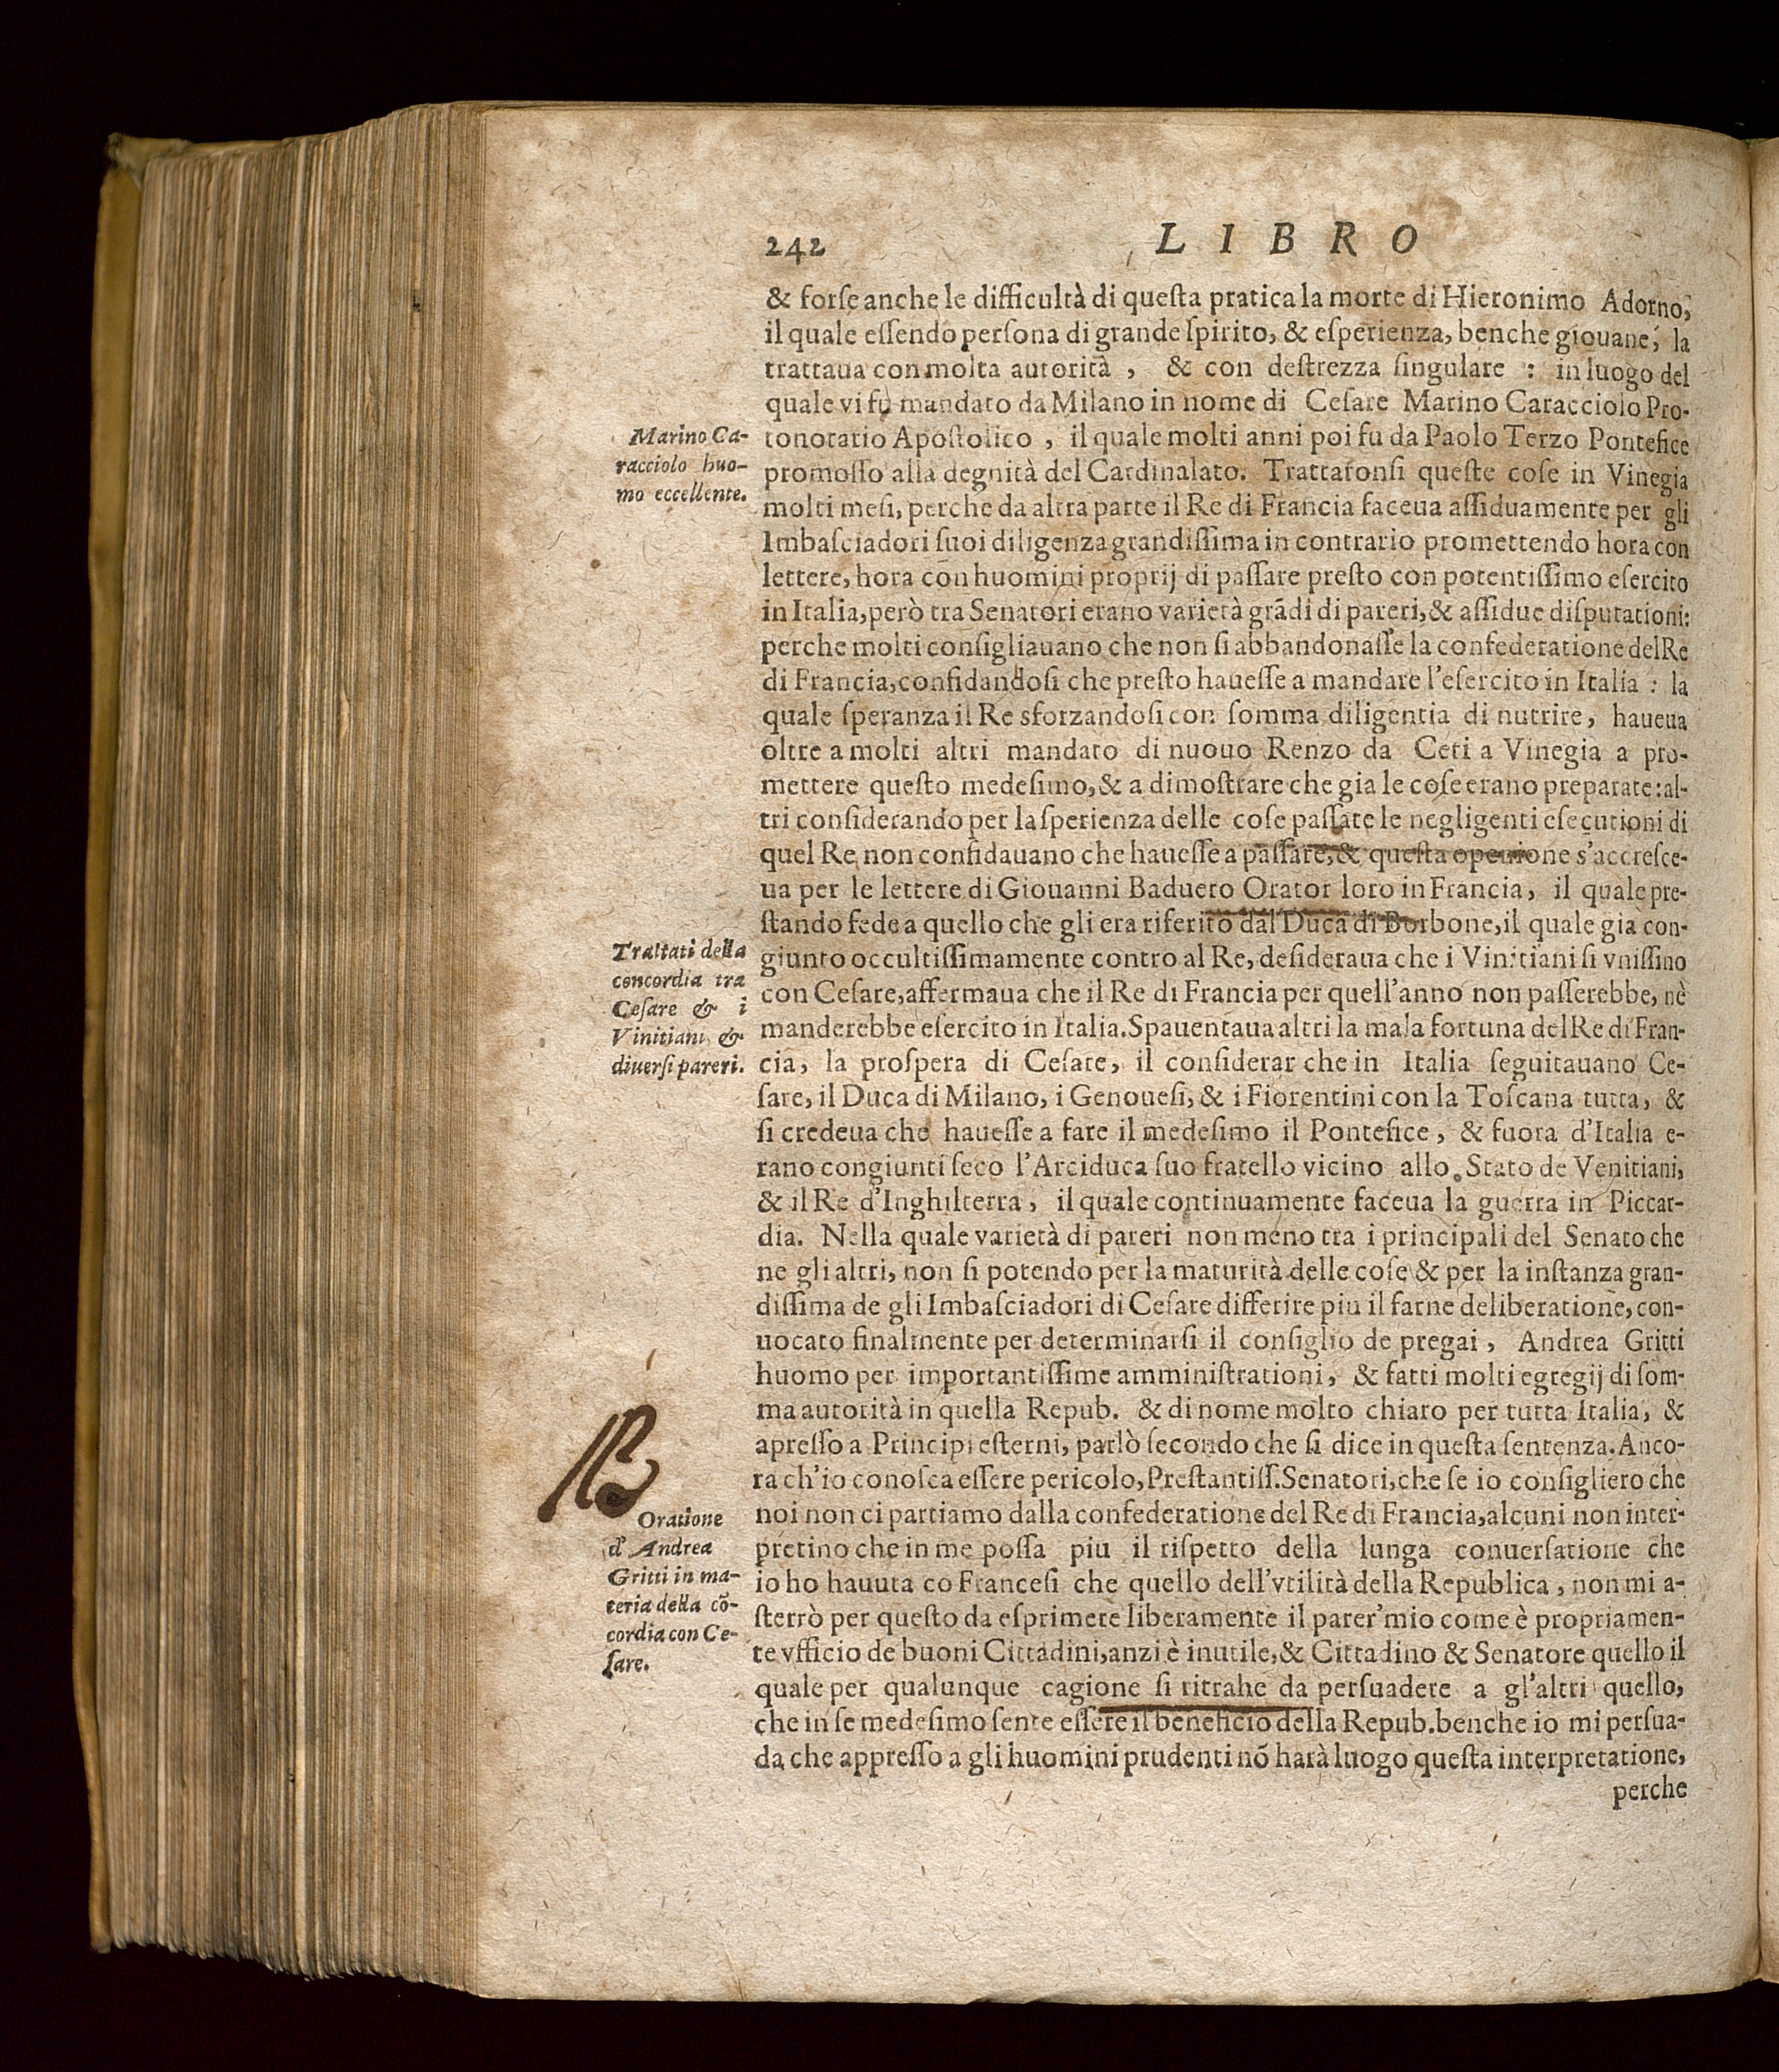 242 LIBRO
& forſe anche le difficultà di queſta pratica la morte di Hieronimo Adorno,
il quale eſſendo perſona di grande ſpirito, & eſperienza, benche giouane, la
trattaua con molta autorità , & con deſtrezza ſingulare : in luogo del
quale vi fu mandato da Milano in nome di Ceſare Marino Caracciolo Pro-
tonotario Apoſtolico , il quale molti anni poi fu da Paolo Terzo Pontefice
promoſſo alla degnità del Cardinalato. Trattaronſi queſte coſe in Vinegia
molti meſi, perche da altra parte il Re di Francia faceua aſſiduamente per gli
Imbaſciadori ſuoi diligenza grandiſſima in contrario promettendo hora con
lettere, hora con huomini proprij di paſſare preſto con potentiſſimo eſercito
in Italia, però tra Senatori erano varietà grādi di pareri, & aſſidue diſputationi:
perche molti conſigliauano che non ſi abbandonaſſe la confederatione del Re
di Francia, confidandoſi che preſto haueſſe a mandare l'eſercito in Italia : la
quale ſperanza il Re sforzandoſi con ſomma diligentia di nutrire, haueua
oltre a molti altri mandato di nuouo Renzo da Ceri a Vinegia a pro-
mettere queſto medeſimo, & a dimoſtrare che gia le coſe erano preparate: al-
tri conſiderando per la ſperienza delle coſe paſſate le negligenti eſecutioni di
quel Re non confidauano che haueſſe a paſſare, & queſta openione s'accreſce-
ua per le lettere di Giouanni Baduero Orator loro in Francia, il quale pre-
ſtando fede a quello che gli era riferito dal Duca di Borbone, il quale gia con-
giunto occultiſſimamente contro al Re, deſideraua che i Vinitiani ſi vniſſino
con Ceſare, affermaua che il Re di Francia per quell'anno non paſſerebbe, nè
manderebbe eſercito in Italia. Spauentaua altri la mala fortuna del Re di Fran-
cia, la proſpera di Ceſare, il conſiderar che in Italia ſeguitauano Ce-
ſare, il Duca di Milano, i Genoueſi, & i Fiorentini con la Toſcana tutta, &
ſi credeua che haueſſe a fare il medeſimo il Pontefice, & fuora d'Italia e-
rano congiunti ſeco l'Arciduca ſuo fratello vicino allo Stato de Venitiani,
& il Re d'Inghilterra, il quale continuamente faceua la guerra in Piccar-
dia. Nella quale varietà di pareri non meno tra i principali del Senato che
ne gli altri, non ſi potendo per la maturità delle coſe & per la inſtanza gran-
diſſima de gli Imbaſciadori di Ceſare differire piu il farne deliberatione, con-
uocato finalmente per determinarſi il conſiglio de pregai, Andrea Gritti
huomo per importantiſſime amminiſtrationi, & fatti molti egregij di ſom-
ma autorità in quella Repub. & di nome molto chiaro per tutta Italia, &
apreſſo a Principi eſterni, parlò ſecondo che ſi dice in queſta ſentenza. Anco-
ra ch'io conoſca eſſere pericolo, Preſtantiſſ. Senatori, che ſe io conſigliero che
noi non ci partiamo dalla confederatione del Re di Francia, alcuni non inter-
pretino che in me poſſa piu il riſpetto della lunga conuerſatione che
io ho hauuta co Franceſi che quello dell'vtilità della Republica , non mi a-
ſterrò per queſto da eſprimere liberamente il parer'mio come è propriamen-
te vfficio de buoni Cittadini, anzi è inutile, & Cittadino & Senatore quello il
quale per qualunque cagione ſi ritrahe da perſuadere a gl'altri quello,
che in ſe medeſimo ſente eſſere il beneficio della Repub. benche io mi perſua-
da che appreſſo a gli huomini prudenti nō harà luogo queſta interpretatione,
perche
Marino Ca-
racciolo huo-
mo eccellente.
Trattati della
concordia tra
Ceſare & i
Vinitiani &
diuerſi pareri.
Oratione
d' Andrea
Gritti in ma-
teria della cō-
cordia con Ce-
ſare.